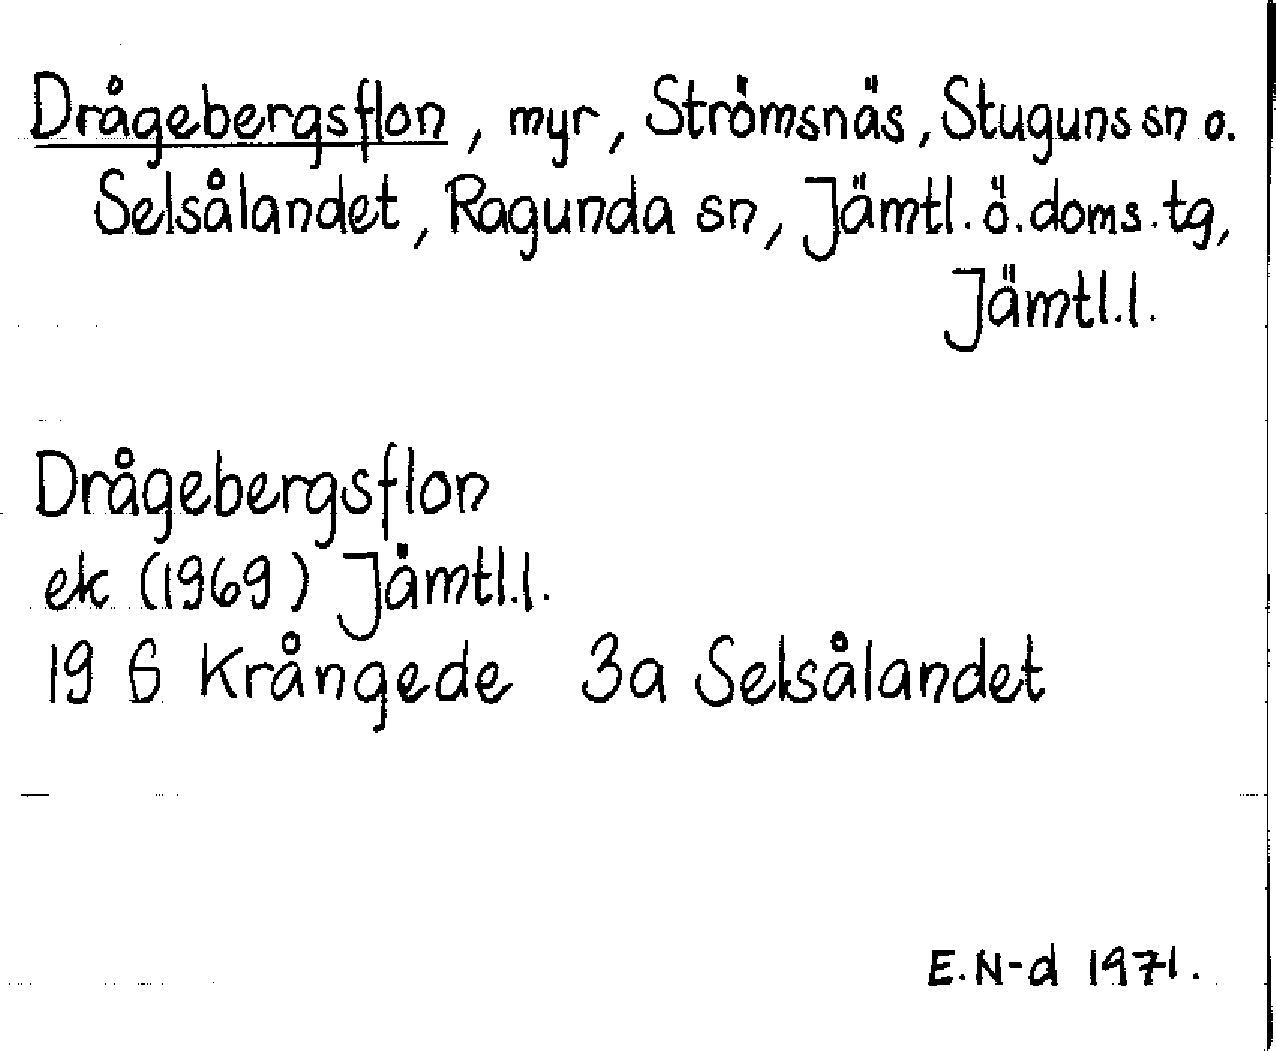 Drågebergsflon, myr, Strömsnäs, Stuguns sn o.
Selsålandet, Ragunda sn, Jämtl. ö. doms. tg,
Jämtl. l.
Drågebergsflon
ek (1969) Jämtl. l.
19 G Krångede 3a Selsålandet
E. N-d 1971.